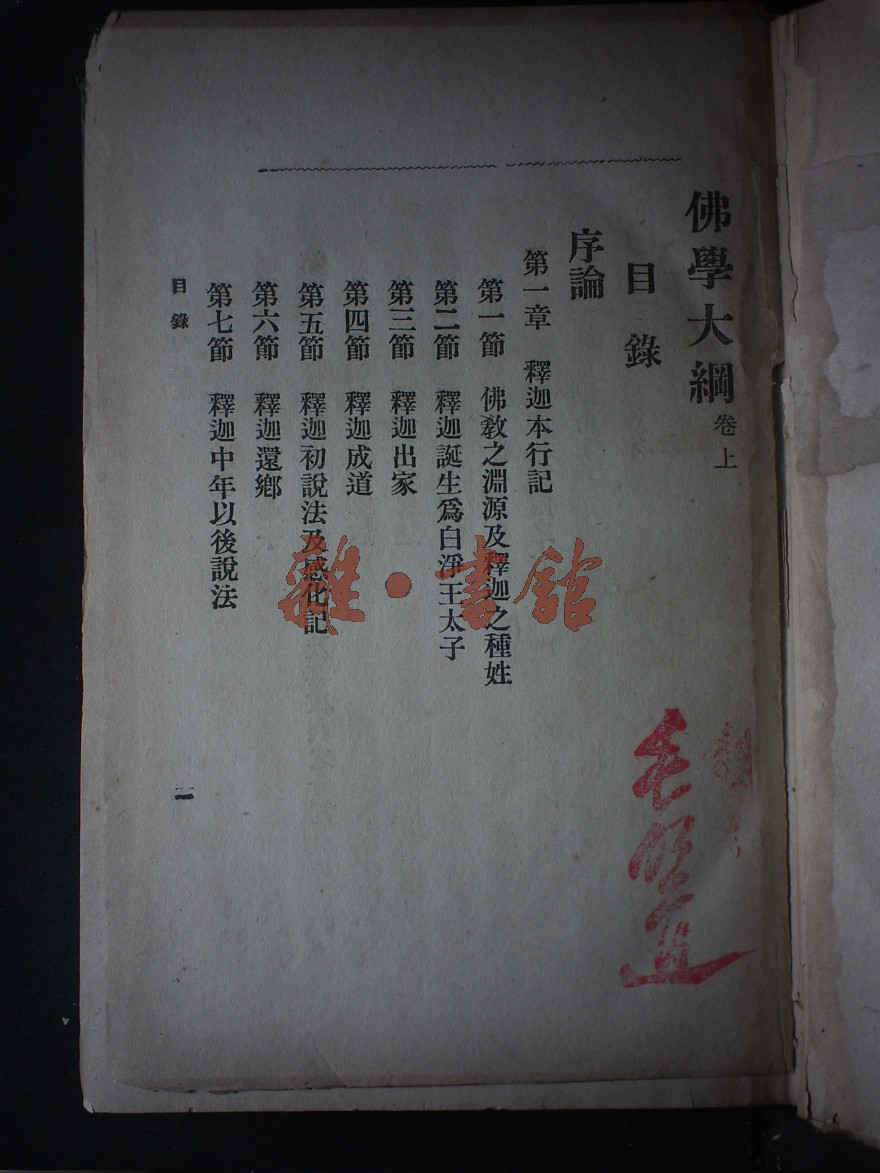 佛學大綱卷上
目錄
序論
第一章 釋迦本行記
第一節 佛敎之淵源及釋迦之種姓
第二節 釋迦誕生爲白淨王太子
第三節 釋迦出家
第四節 釋迦成道
第五節 釋迦初說法及感化記
第六節 釋迦還鄕
第七節 釋迦中年以後說法
目錄
一
雜·書館